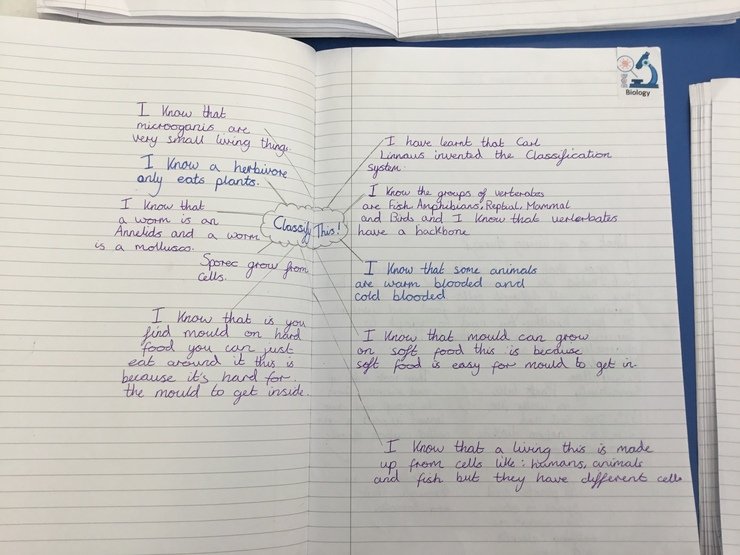 Biology
Classify This!
I Know that
microoganis are
very small living things.
I Know a herbivore
only eats plants.
I Know that
a worm is an
Annelids and a worm
is a mollusco.
Spores grow from
cells.
I Know that is you
find mould on hard
food you can just
eat around it this is
because it's hard for
the mould to get inside.
I have learnt that Carl
Linnaus invented the Classification
system
I Know the groups of verterates
are Fish, Amphibians, Reptual, Mammal
and Birds and I Know that verterbates
have a backbone
I Know that some animals
are warm blooded and
cold blooded
I Know that mould can grow
on soft food this is because
soft food is easy for mould to get in.
I Know that a living this is made
up from cells like: humans, animals
and fish but they have different cells